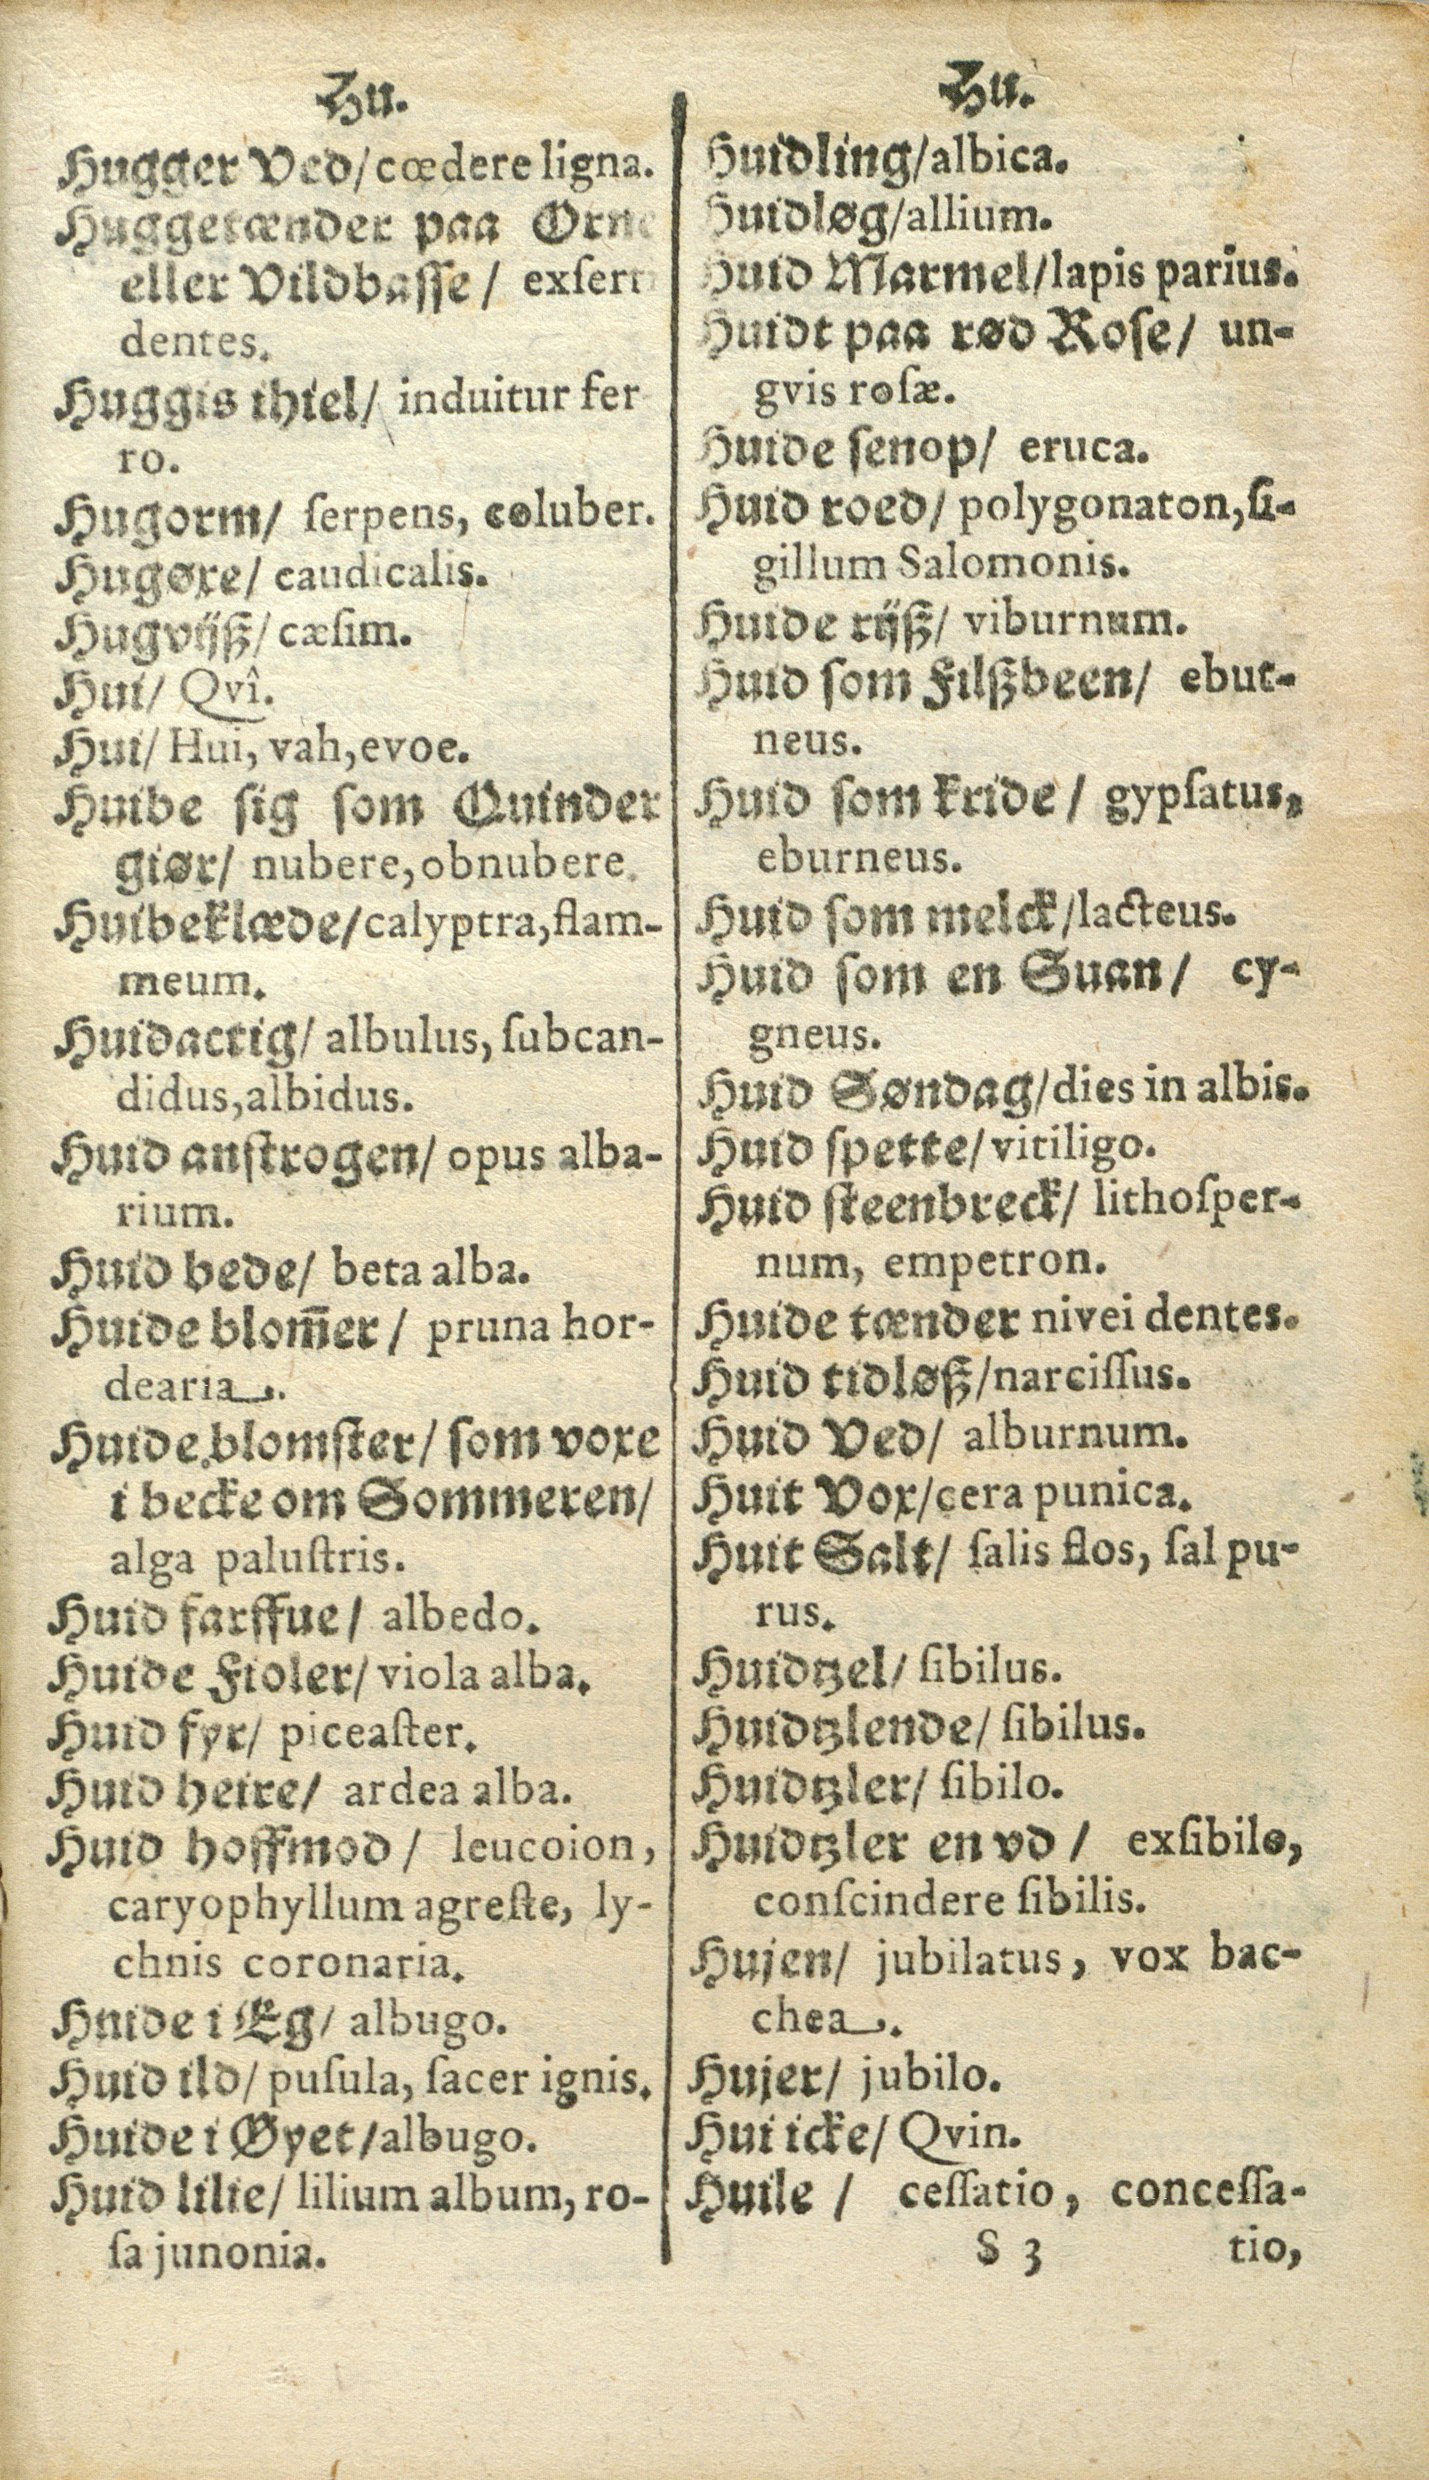 Hu.
Hugger Ved/ cœdere ligna.
Huggetænder paa Orne
eller Vildbasse/ exſerti
dentes.
Huggis ihiel/ induitur fer
ro.
Hugorm/ ſerpens, coluber.
Hugøxe/ caudicalis.
Hugvijß/ cæſim.
Hui/ Qvî.
Hui/ Hui, vah, evoe.
Huibe sig som Quinder
giør/ nubere, obnubere.
Huibeklæde/ calyptra, flam-
meum.
Huidactig/ albulus, ſubcan-
didus, albidus.
Huid anstrogen/ opus alba-
rium.
Huid bede/ beta alba.
Huide blom̅er/ pruna hor-
dearia.
Huide blomster/ som voxe
i becke om Sommeren/
alga paluſtris.
Huid farffue/ albedo.
Huide Fioler/ viola alba.
Huid fyr/ piceaſter.
Huid heire/ ardea alba.
Huid hoffmod/ leucoion,
caryophyllum agreſte, ly-
chnis coronaria.
Huide i Eg/ albugo.
Huid ild/ puſula, ſacer ignis.
Huide i Øyet/ albugo.
Huid lilie/ lilium album, ro-
ſa junonia.
Hu.
Huidling/ albica.
Huidløg/ allium.
Huid Marmel/ lapis parius.
Huidt paa rød Rose/ un-
gvis roſæ.
Huide senop/ eruca.
Huid roed/ polygonaton, ſi-
gillum Salomonis.
Huide rijß/ viburnum.
Huid som Filßbeen/ ebur-
neus.
Huid som kride/ gypſatus,
eburneus.
Huid som melck/ lacteus.
Huid som en Suan/ cy-
gneus.
Huid Søndag/ dies in albis.
Huid spette/ vitiligo.
Huid steenbreck/ lithoſper-
num, empetron.
Huide tænder nivei dentes.
Huid tidløß/ narciſſus.
Huid Ved/ alburnum.
Huit Vox/ cera punica.
Huit Salt/ ſalis flos, ſal pu-
rus.
Huidtzel/ ſibilus.
Huidtzlende/ ſibilus.
Huidtzler/ ſibilo.
Huidtzler en vd/ exſibilo,
conſcindere ſibilis.
Hujen/ jubilatus, vox bac-
chea.
Hujer/ jubilo.
Hui icke/ Qvin.
Huile/ ceſſatio, conceſſa-
S 3 tio,